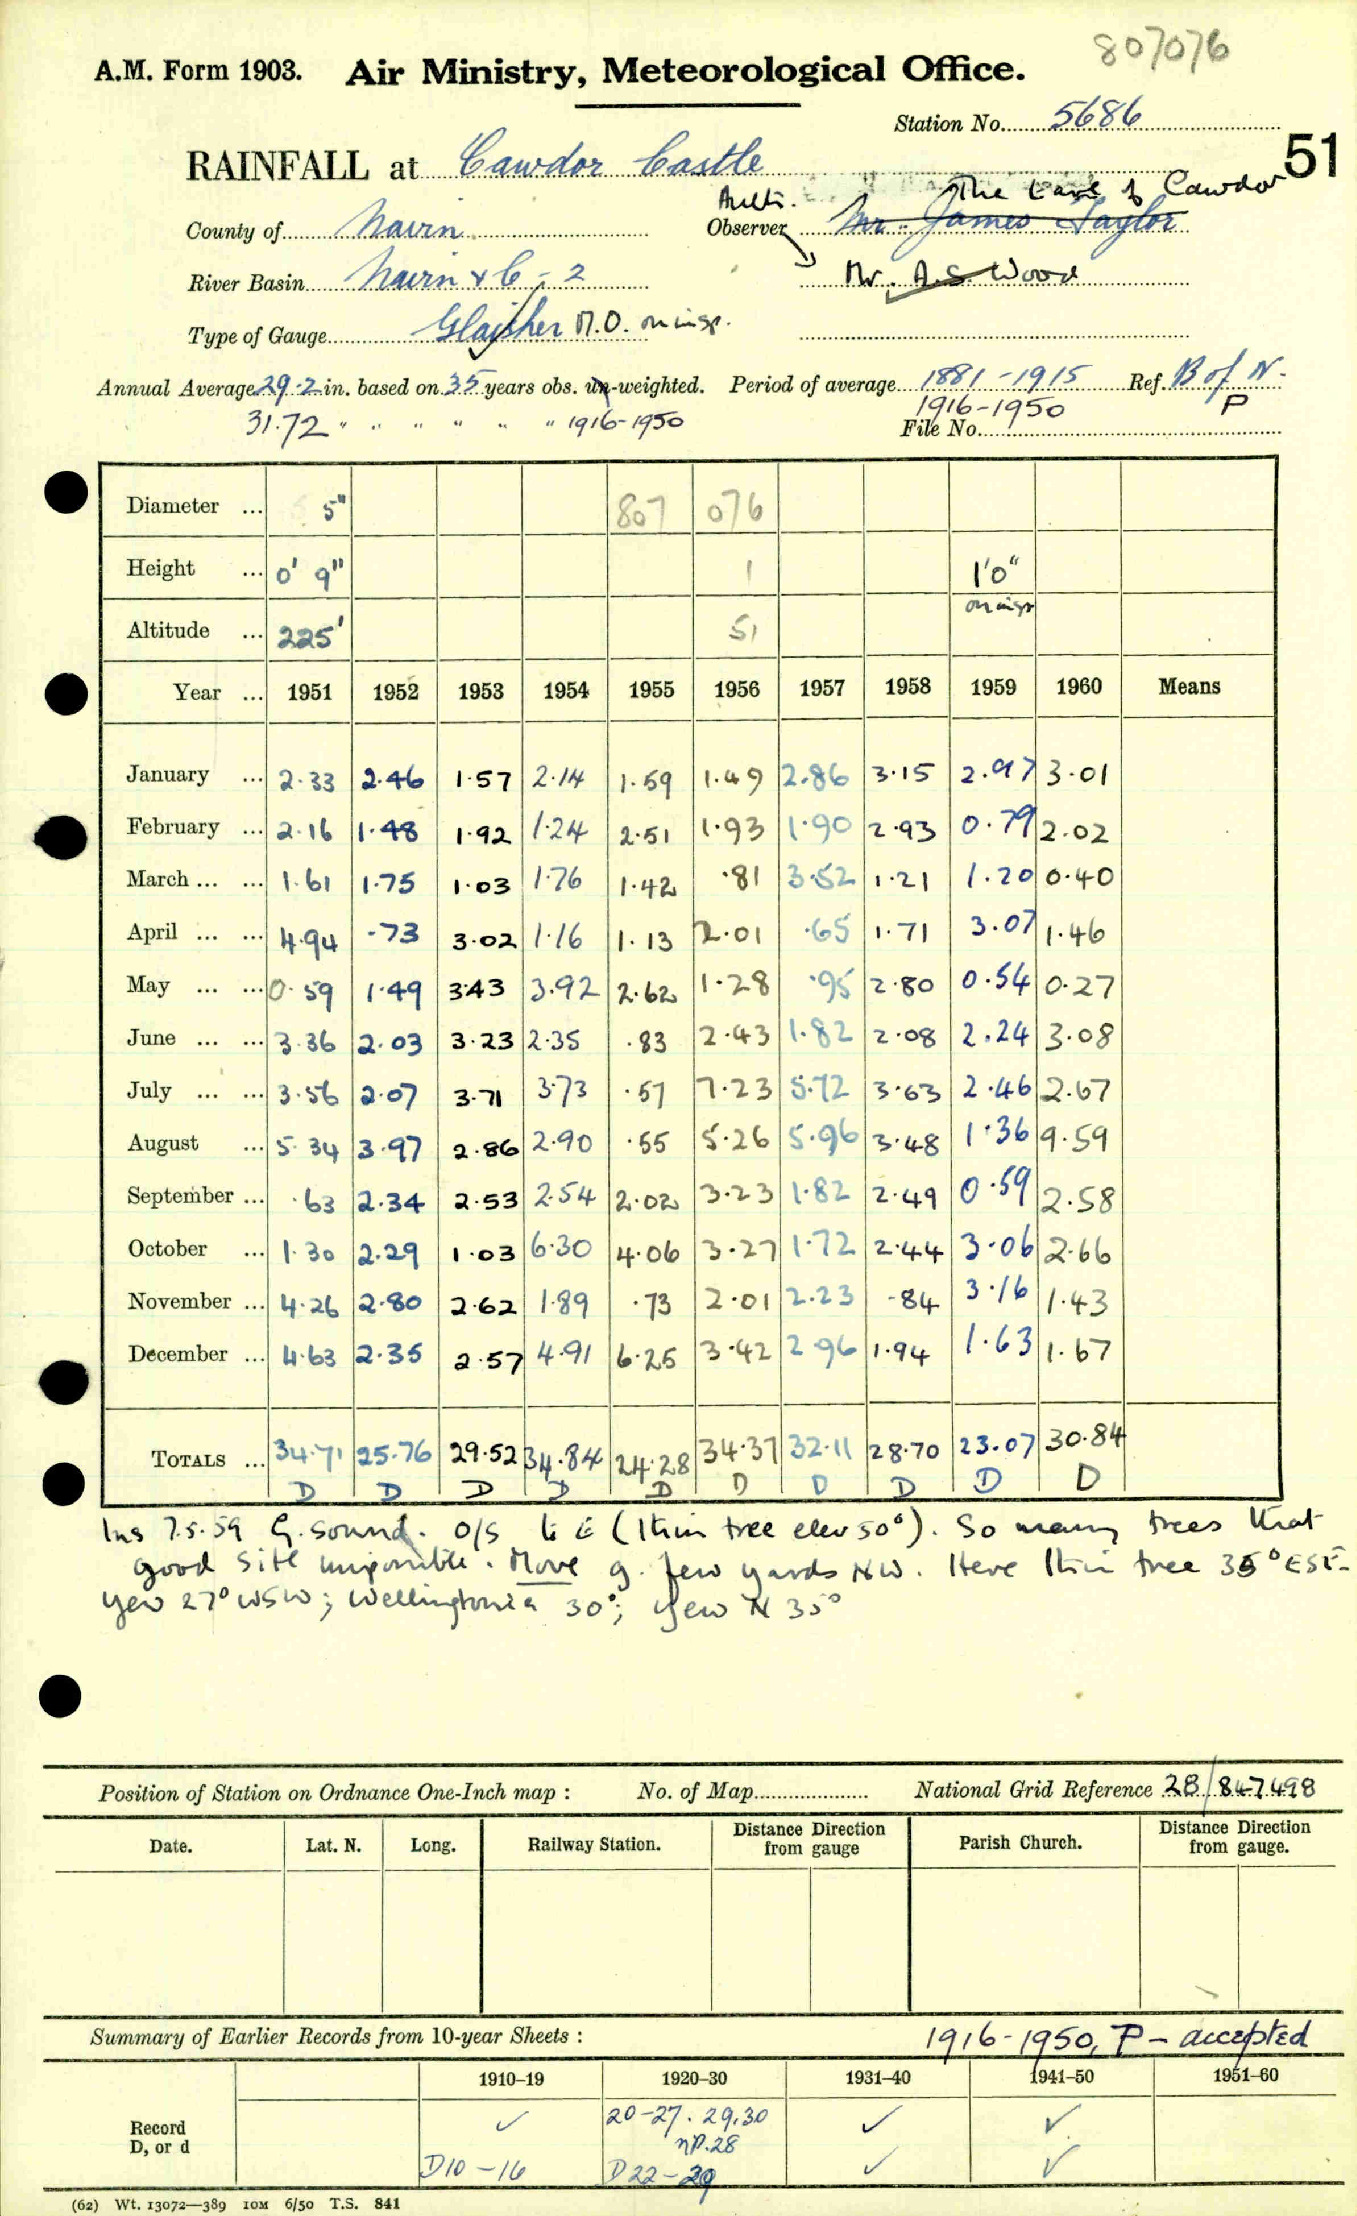 807076
A.M. Form 1903. Air Ministry, Meteorological Office.
Station No. 5686
51
RAINFALL at Cawdor Castle
Auth. The Earl of Cawdor
County of Nairn Observer Mr. James Taylor
River Basin Nairn & C - 2 Mr. A.S. Wood
Type of Gauge Glaisher M.O. on insp.
Annual Average 29.2 in. based on 35 years obs. un-weighted. Period of average 1881-1915 Ref. B of N.
31.72 " " " " " " 1916-1950 1916-1950 P
File No.
Diameter ... 5" 807 076
Height ... 0' 9" 1 1'0"
on insp
Altitude ... 225' 51
Year ... 1951 1952 1953 1954 1955 1956 1957 1958 1959 1960 Means
January ... 2.33 2.46 1.57 2.14 1.59 1.49 2.86 3.15 2.97 3.01
February ... 2.16 1.48 1.92 1.24 2.51 1.93 1.90 2.93 0.79 2.02
March ... ... 1.61 1.75 1.03 1.76 1.42 .81 3.52 1.21 1.20 0.40
April ... ... 4.94 .73 3.02 1.16 1.13 2.01 .65 1.71 3.07 1.46
May ... ... 0.59 1.49 3.43 3.92 2.62 1.28 .95 2.80 0.54 0.27
June ... ... 3.36 2.03 3.23 2.35 .83 2.43 1.82 2.08 2.24 3.08
July ... ... 3.56 2.07 3.71 3.73 .57 7.23 5.72 3.63 2.46 2.67
August ... 5.34 3.97 2.86 2.90 .55 5.26 5.96 3.48 1.36 9.59
September ... .63 2.34 2.53 2.54 2.02 3.23 1.82 2.49 0.59 2.58
October ... 1.30 2.29 1.03 6.30 4.06 3.27 1.72 2.44 3.06 2.66
November ... 4.26 2.80 2.62 1.89 .73 2.01 2.23 .84 3.16 1.43
December ... 4.63 2.35 2.57 4.91 6.25 3.42 2.96 1.94 1.63 1.67
TOTALS ... 34.71 25.76 29.52 34.84 24.28 34.37 32.11 28.70 23.07 30.84
D D D D D D D D D D
Ins 7.5.59 G. sound. O/S to E (thin tree elev 50°). So many trees that
good site impossible. Move g. few yards NW. Here thin tree 35° ESE.
yew 27° WSW; Wellingtonia 30°; yew N 35°
Position of Station on Ordnance One-Inch map : No. of Map National Grid Reference 28/847498
Date. Lat. N. Long. Railway Station. Distance Direction from gauge Parish Church. Distance Direction from gauge.
Summary of Earlier Records from 10-year Sheets : 1916-1950, P - accepted
1910–19 1920–30 1931–40 1941–50 1951–60
Record ✓ 20-27. 29,30 ✓ ✓
D, or d nP.28
D10-16 D22-29 ✓ ✓
(62) Wt. 13072—389 10M 6/50 T.S. 841